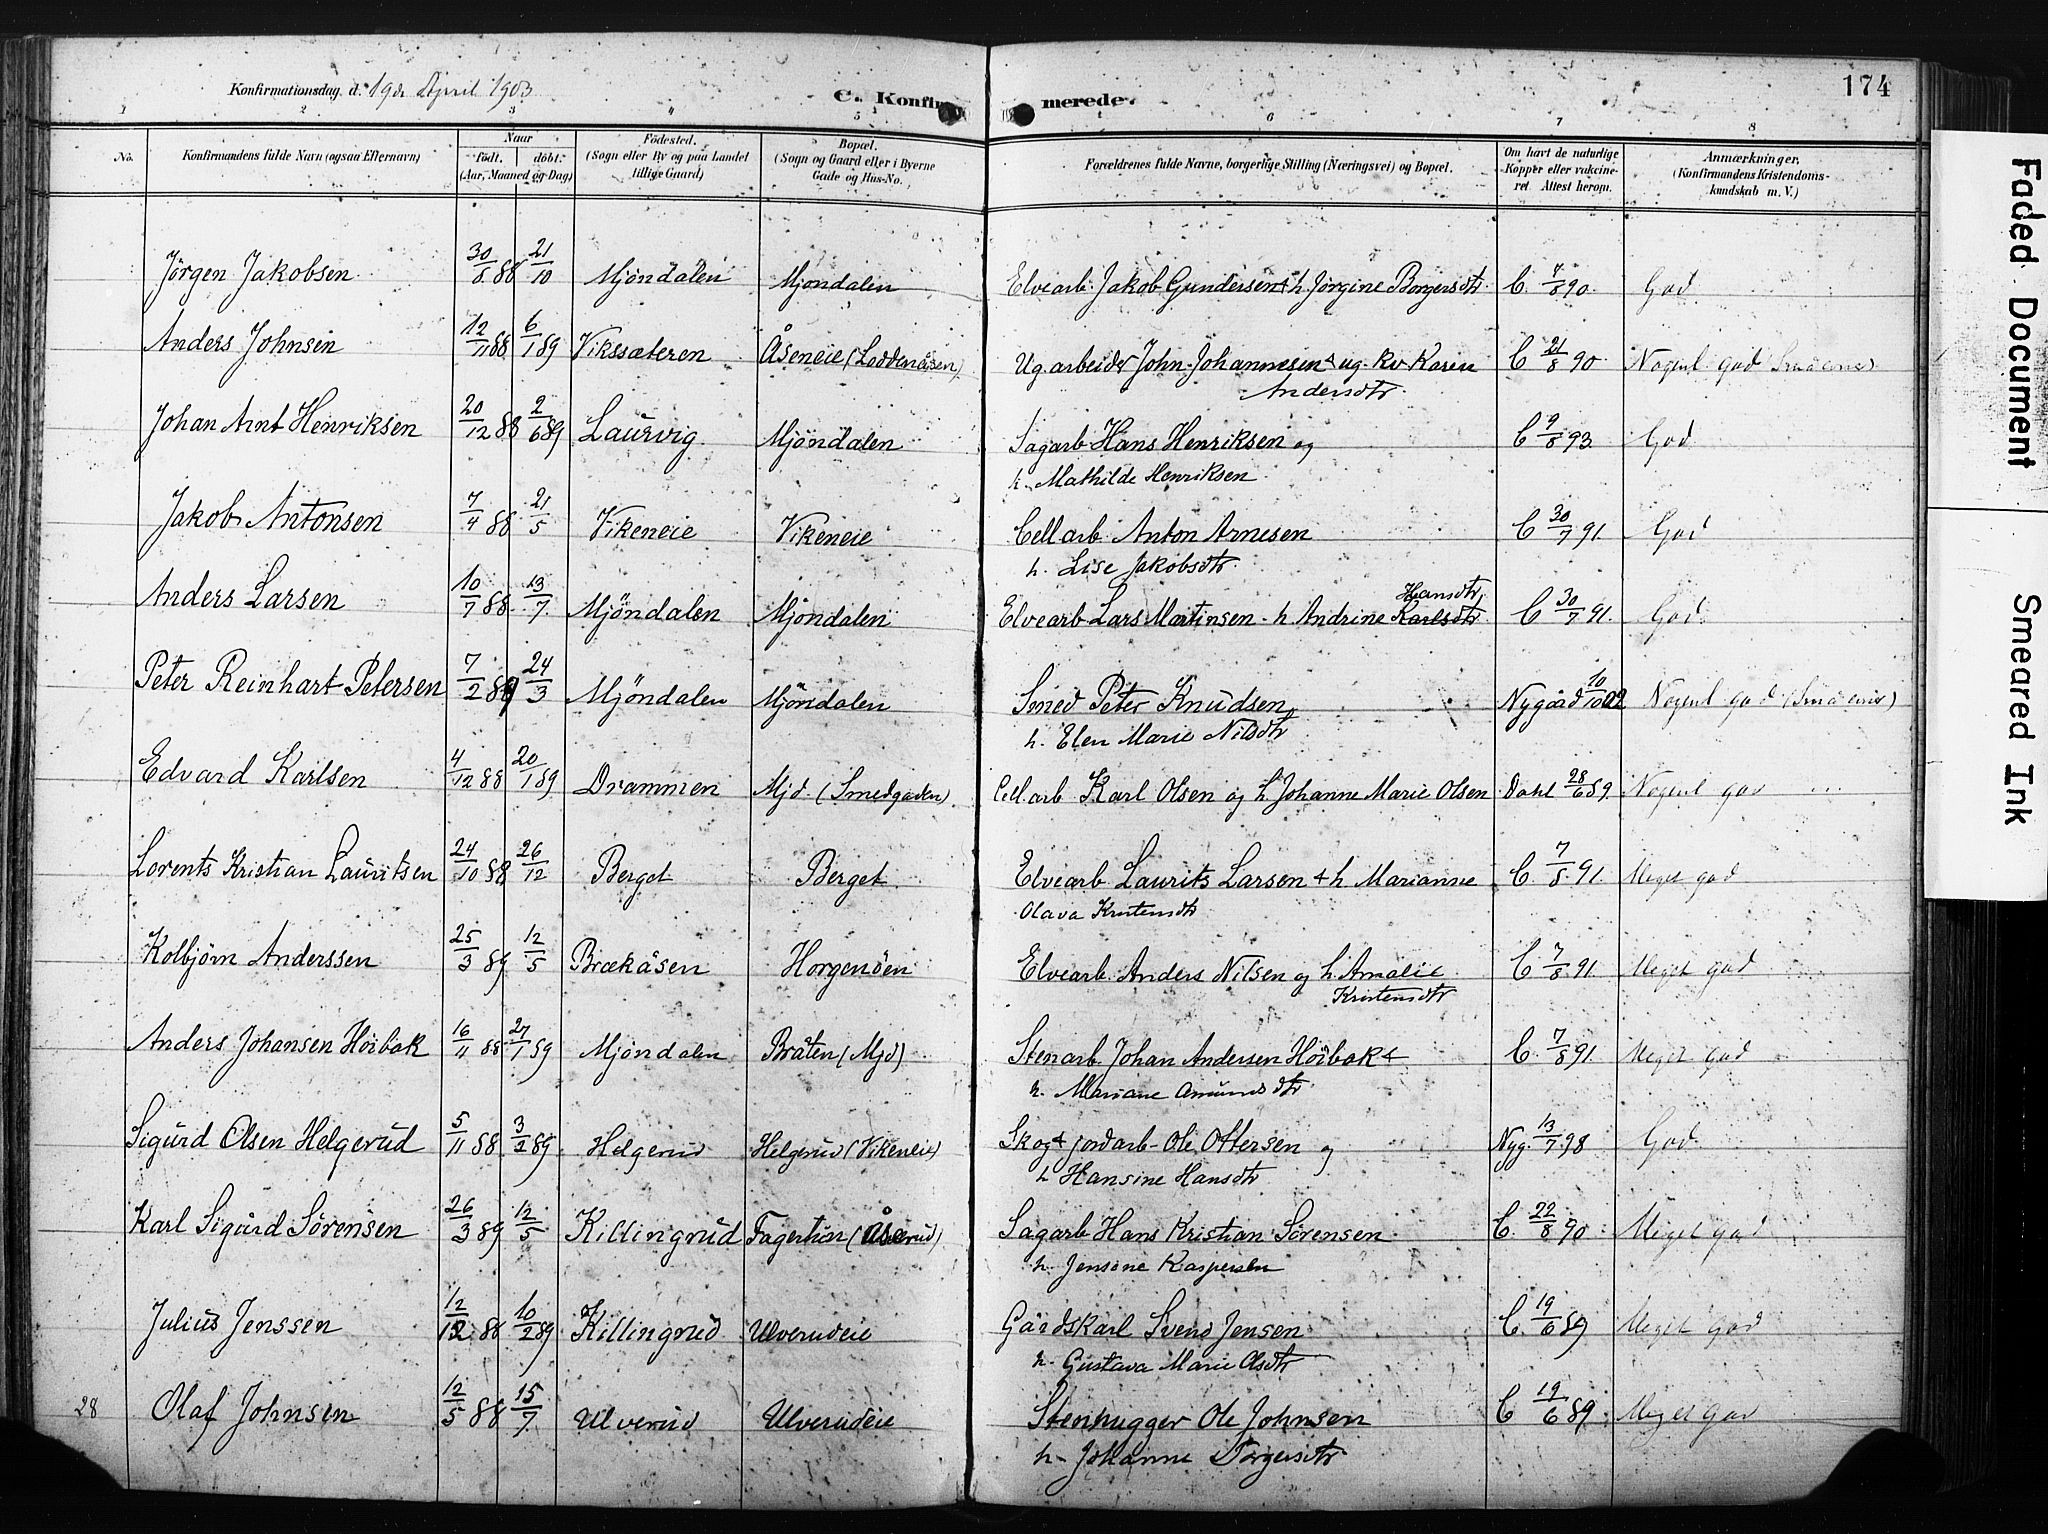 Konfirmationsdag d. 19de April 1903
C. Konfirmerede.
174
1 2 3 4 5 6 7 8
No.
Konfirmandens fulde Navn (ogsaa Efternavn)
Naar
født. døbt.
(Aar, Maaned og Dag)
Fødested.
(Sogn eller By og paa Landet
tillige Gaard)
Bopæl.
(Sogn og Gaard eller i Byerne
Gade og Hus-No.)
Forældrenes fulde Navne, borgerlige Stilling (Næringsvei) og Bopæl.
Om havt de naturlige
Kopper eller vaccineret
Attest herom.
Anmærkninger.
(Konfirmandens Kristendomskundskab
m. V.)
Jörgen Jakobsen 30/8 88 21/10 Mjöndalen Mjöndalen Elvearb. Jakob Gundersen & h Jörgine Borgersdtr. C. 7/8 90. God
Anders Johnsen 12/11 88 6/1 89 Vikssæteren Åseneie (Loddenåsen) Ug. arbeider John Johannesen & ug. kv Karen C 21/8 90. Noget god
Andersdtr.
Johan Arnt Henriksen 20/12 88 2/6 89 Laurvig. Mjöndalen Sagarb Hans Henriksen og C 9/8 93 God
h. Mathilde Henriksen
Jakob Antonsen 7/4 88 21/5 Vikeneie Vikeneie Cellarb. Anton Arnesen C 30/7 91. God
h. Lise Jakobsdtr.
Anders Larsen 10/7 88. 13/7 Mjöndalen Mjöndalen Elvearb Lars Martinsen - h Andrine Karlsdtr. Hansdtr. C 30/7 91. God
Peter Reinhart Petersen 7/2 89 24/3 Mjöndalen Mjöndalen Smed Peter Knudsen Nygård 10/10 02 Noget god
h. Elen Marie Nilsdtr
Edvard Karlsen 4/12 88 20/1 89 Drammen Mjd. (Smedgaden) Cell.arb Karl Olsen og h. Johanne Marie Olsen Dahl 28/6 89. Noget god
Lorents Kristian Lauritsen 24/10 88 26/12 Berget Berget. Elvearb Laurits Larsen & h Marianne C. 7/8 91. Meget god
Olava Kristensdtr
Kolbjörn Anderssen 25/3 89 12/5 Brækåsen Horgenöen Elvearb. Anders Nilsen og h. Amalie C. 7/8 91. Meget god
Kristensdtr
Anders Johansen Höibak 16/11 88. 27/1 89 Mjöndalen Bråten (Mjd) Stenarb Johan Andersen Höibak & C. 7/8 91. Meget god
h. Mariane Amunds dtr.
Sigurd Olsen Helgerud 5/11 88. 3/2 89 Helgerud Helgerud (Vikeneie) Skog & jordarb - Ole Ottersen og Nyg. 13/7 98 God
h Hansine Hansdtr
Karl Sigurd Sörensen 26/3 89 12/5 Killingrud Fagertun (Åserud) Sagarb Hans Kristian Sörensen C. 22/8 90. Meget god
h. Jensine Kaspersen
Julius Jenssen 12/12 88 10/2 89 Killingrud Ulverudeie Gårdskarl Svend Jensen C. 19/6 89 Meget god
h. Gustava Marie Olsdtr
28 Olaf Johnsen 12/5 88 15/7 Ulverud Ulverudeie Stenhugger Ole Johnsen C 19/6 89. Meget god
h - Johanne Torgersdtr
Faded Document
Smeared Ink